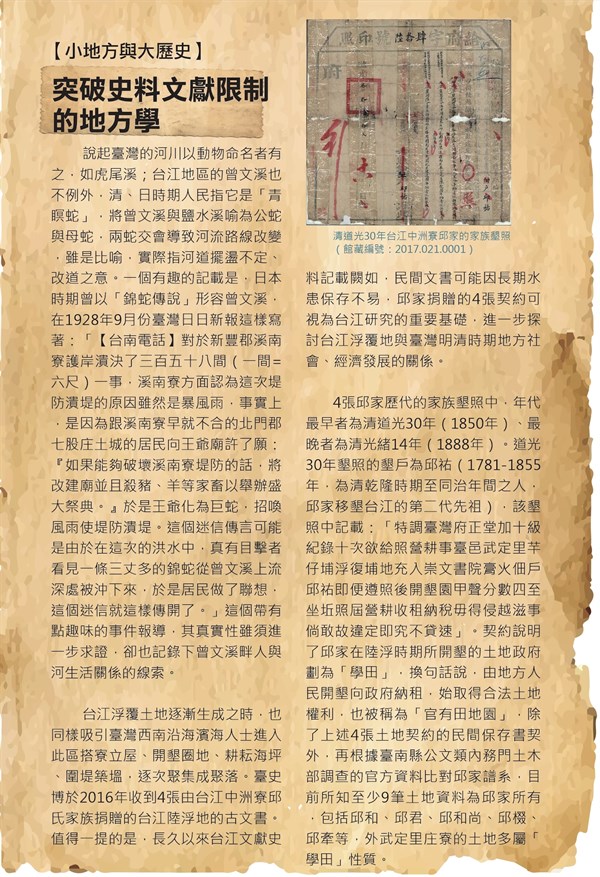 【小地方與大歷史】
突破史料文獻限制
的地方學
說起臺灣的河川以動物命名者有
之，如虎尾溪；台江地區的曾文溪也
不例外，清、日時期人民指它是「青
瞑蛇」，將曾文溪與鹽水溪喻為公蛇
與母蛇，兩蛇交會導致河流路線改變
，雖是比喻，實際指河道擺盪不定、
改道之意。一個有趣的記載是，日本
時期曾以「錦蛇傳說」形容曾文溪，
在1928年9月份臺灣日日新報這樣寫
著：「【台南電話】對於新豐郡溪南
寮護岸潰決了三百五十八間（一間=
六尺）一事，溪南寮方面認為這次堤
防潰堤的原因雖然是暴風雨，事實上
，是因為跟溪南寮早就不合的北門郡
七股庄土城的居民向王爺廟許了願：
『如果能夠破壞溪南寮堤防的話，將
改建廟並且殺豬、羊等家畜以舉辦盛
大祭典。』於是王爺化為巨蛇，招喚
風雨使堤防潰堤。這個迷信傳言可能
是由於在這次的洪水中，真有目擊者
看見一條三丈多的錦蛇從曾文溪上流
深處被沖下來，於是居民做了聯想，
這個迷信就這樣傳開了。」這個帶有
點趣味的事件報導，其真實性雖須進
一步求證，卻也記錄下曾文溪畔人與
河生活關係的線索。
台江浮覆土地逐漸生成之時，也
同樣吸引臺灣西南沿海濱海人士進入
此區搭寮立屋、開墾圈地、耕耘海坪
、圍堤築塭，逐次聚集成聚落。臺史
博於2016年收到4張由台江中洲寮邱
氏家族捐贈的台江陸浮地的古文書。
值得一提的是，長久以來台江文獻史
清道光30年台江中洲寮邱家的家族墾照
（館藏編號：2017.021.0001）
料記載闕如，民間文書可能因長期水
患保存不易，邱家捐贈的4張契約可
視為台江研究的重要基礎，進一步探
討台江浮覆地與臺灣明清時期地方社
會、經濟發展的關係。
4張邱家歷代的家族墾照中，年代
最早者為清道光30年（1850年）、最
晚者為清光緒14年（1888年）。道光
30年墾照的墾戶為邱祐（1781-1855
年，為清乾隆時期至同治年間之人，
邱家移墾台江的第二代先祖），該墾
照中記載：「特調臺灣府正堂加十級
紀錄十次欲給照營耕事臺邑武定里芊
仔埔浮復埔地充入崇文書院膏火佃戶
邱祐即便遵照後開墾園甲聲分數四至
坐坵照屆營耕收租納稅毋得侵越滋事
倘敢故違定即究不貸速」。契約說明
了邱家在陸浮時期所開墾的土地政府
劃為「學田」，換句話說，由地方人
民開墾向政府納租，始取得合法土地
權利，也被稱為「官有田地園」，除
了上述4張土地契約的民間保存書契
外，再根據臺南縣公文類內務門土木
部調查的官方資料比對邱家譜系，目
前所知至少9筆土地資料為邱家所有
，包括邱和、邱君、邱和尚、邱棳、
邱牽等，外武定里庄寮的土地多屬「
學田」性質。